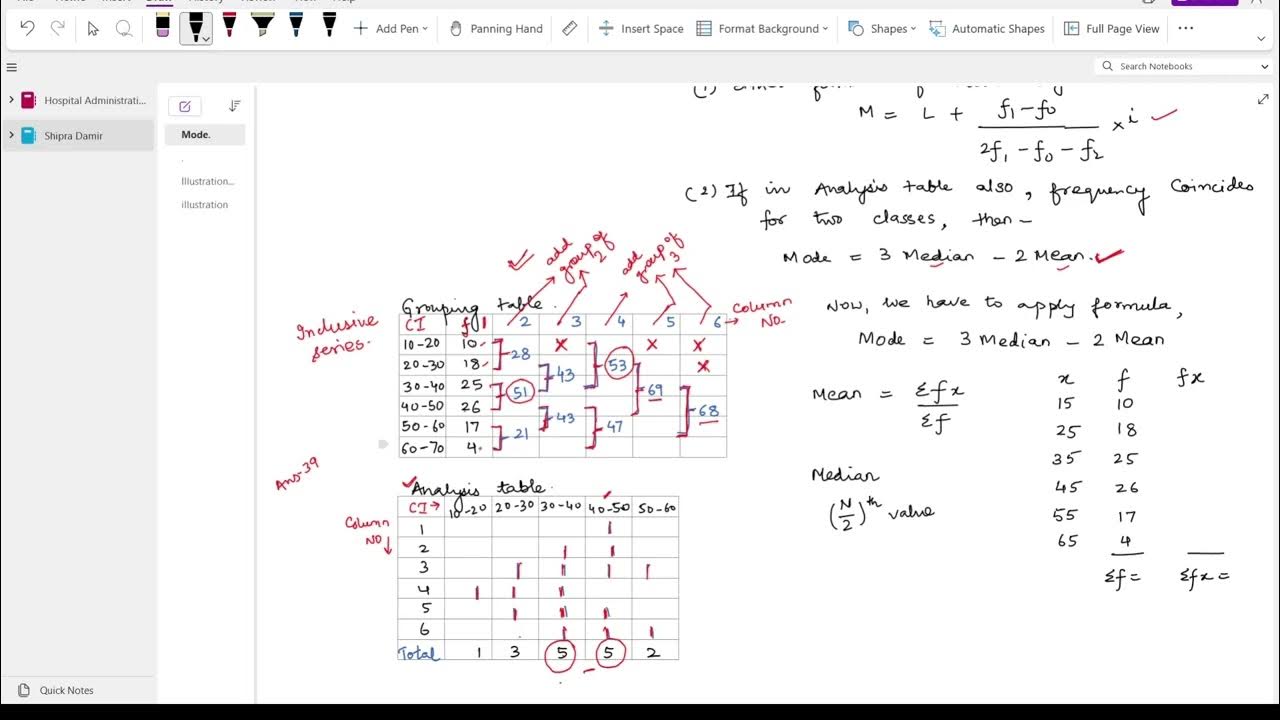 Add Pen
Panning Hand
Insert Space
Format Background
Shapes
Automatic Shapes
Full Page View
Search Notebooks
Hospital Administrati...
Shipra Damir
Mode.
Illustration...
illustration
Quick Notes
M = L + f1 - f0 / 2f1 - f0 - f2 × i ✓
(2) If in Analysis table also, frequency Coincides
for two classes, then -
Mode = 3 Median - 2 Mean. ✓
Now, we have to apply formula,
Mode = 3 Median - 2 Mean
Mean = Σfx / Σf
x f fx
15 10
25 18
35 25
45 26
55 17
65 4
Σf = Σfx =
Median
(N/2)th value
✓ add group of 2
add group of 3
Grouping table.
Inclusive
series.
CI f 1 2 3 4 5 6 → Column No-
10-20 10 x x x
28
20-30 18 53 x
43
30-40 25 69
51
40-50 26 68
43
50-60 17 47
21
60-70 4
Ans-39
✓ Analysis table.
Column
No ↓
CI → 10-20 20-30 30-40 40-50 50-60
1 |
2 | |
3 | || | |
4 | | ||
5 | || ||
6 | | |
Total 1 3 5 5 2